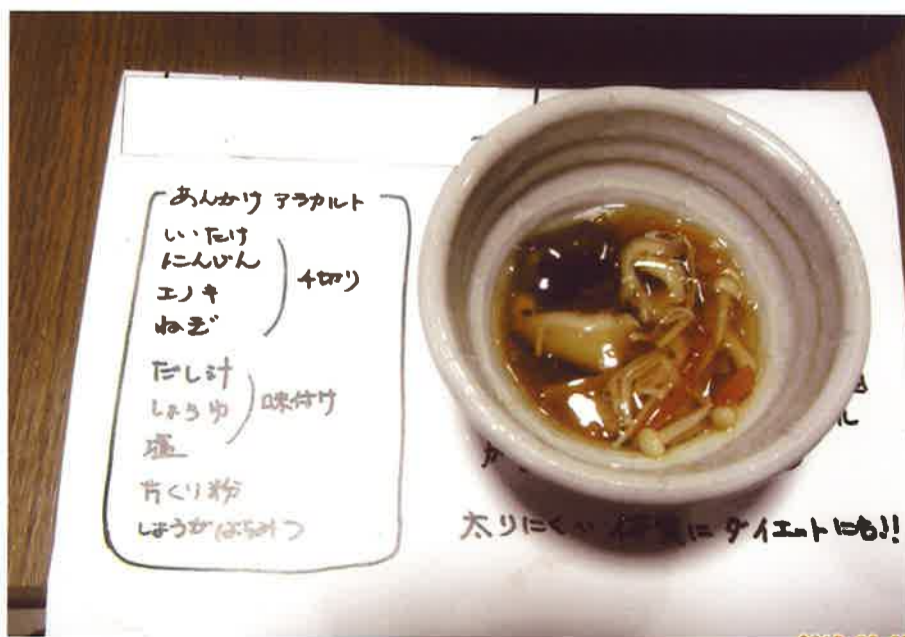 あんかけ アラカルト
しいたけ
にんじん
エノキ
ねぎ
千切り
だし汁
しょうゆ
塩
味付け
片くり粉
しょうが はちみつ
太りにくい 体質に ダイエットにも!!